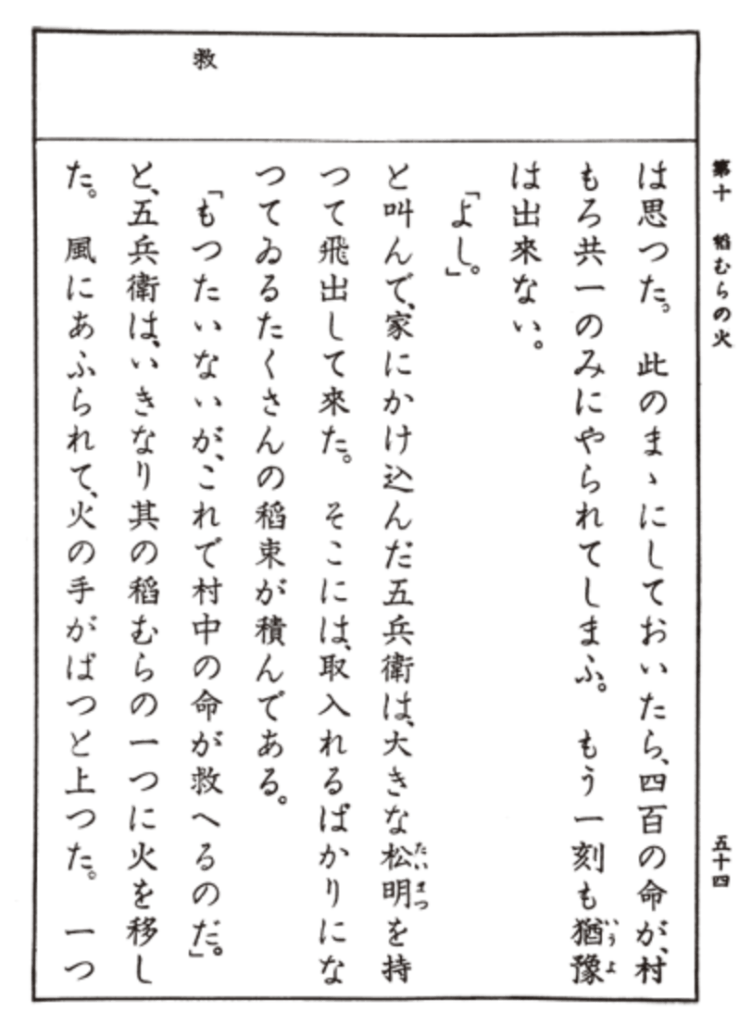 第十 稻むらの火 五十四
救
は思つた。 此のまゝにしておいたら、四百の命が、村
もろ共一のみにやられてしまふ。 もう一刻も猶豫
は出來ない。
「よし。」
と叫んで、家にかけ込んだ五兵衛は、大きな松明を持
つて飛出して來た。 そこには、取入れるばかりにな
つてゐるたくさんの稻束が積んである。
「もつたいないが、これで村中の命が救へるのだ。」
と、五兵衛は、いきなり其の稻むらの一つに火を移し
た。 風にあふられて、火の手がぱつと上つた。 一つ
いうよ
たいまつ